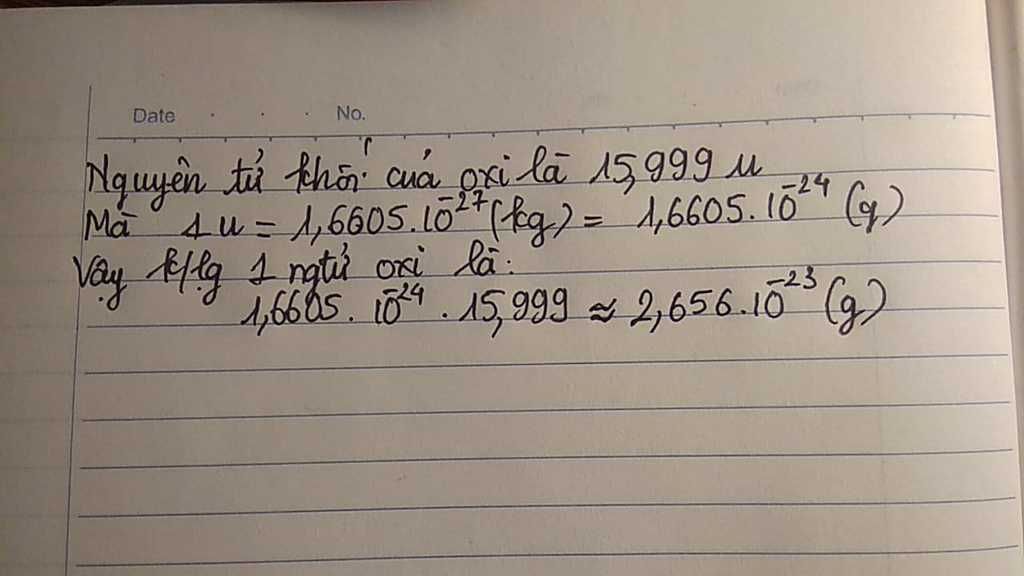 Date . . . No.
Nguyên tử khối của oxi là 15,999 u
Mà 1u = 1,6605.10⁻²⁷(kg) = 1,6605.10⁻²⁴ (g)
Vậy k/lg 1 ngtử oxi là:
1,6605. 10⁻²⁴ . 15,999 ≈ 2,656.10⁻²³ (g)